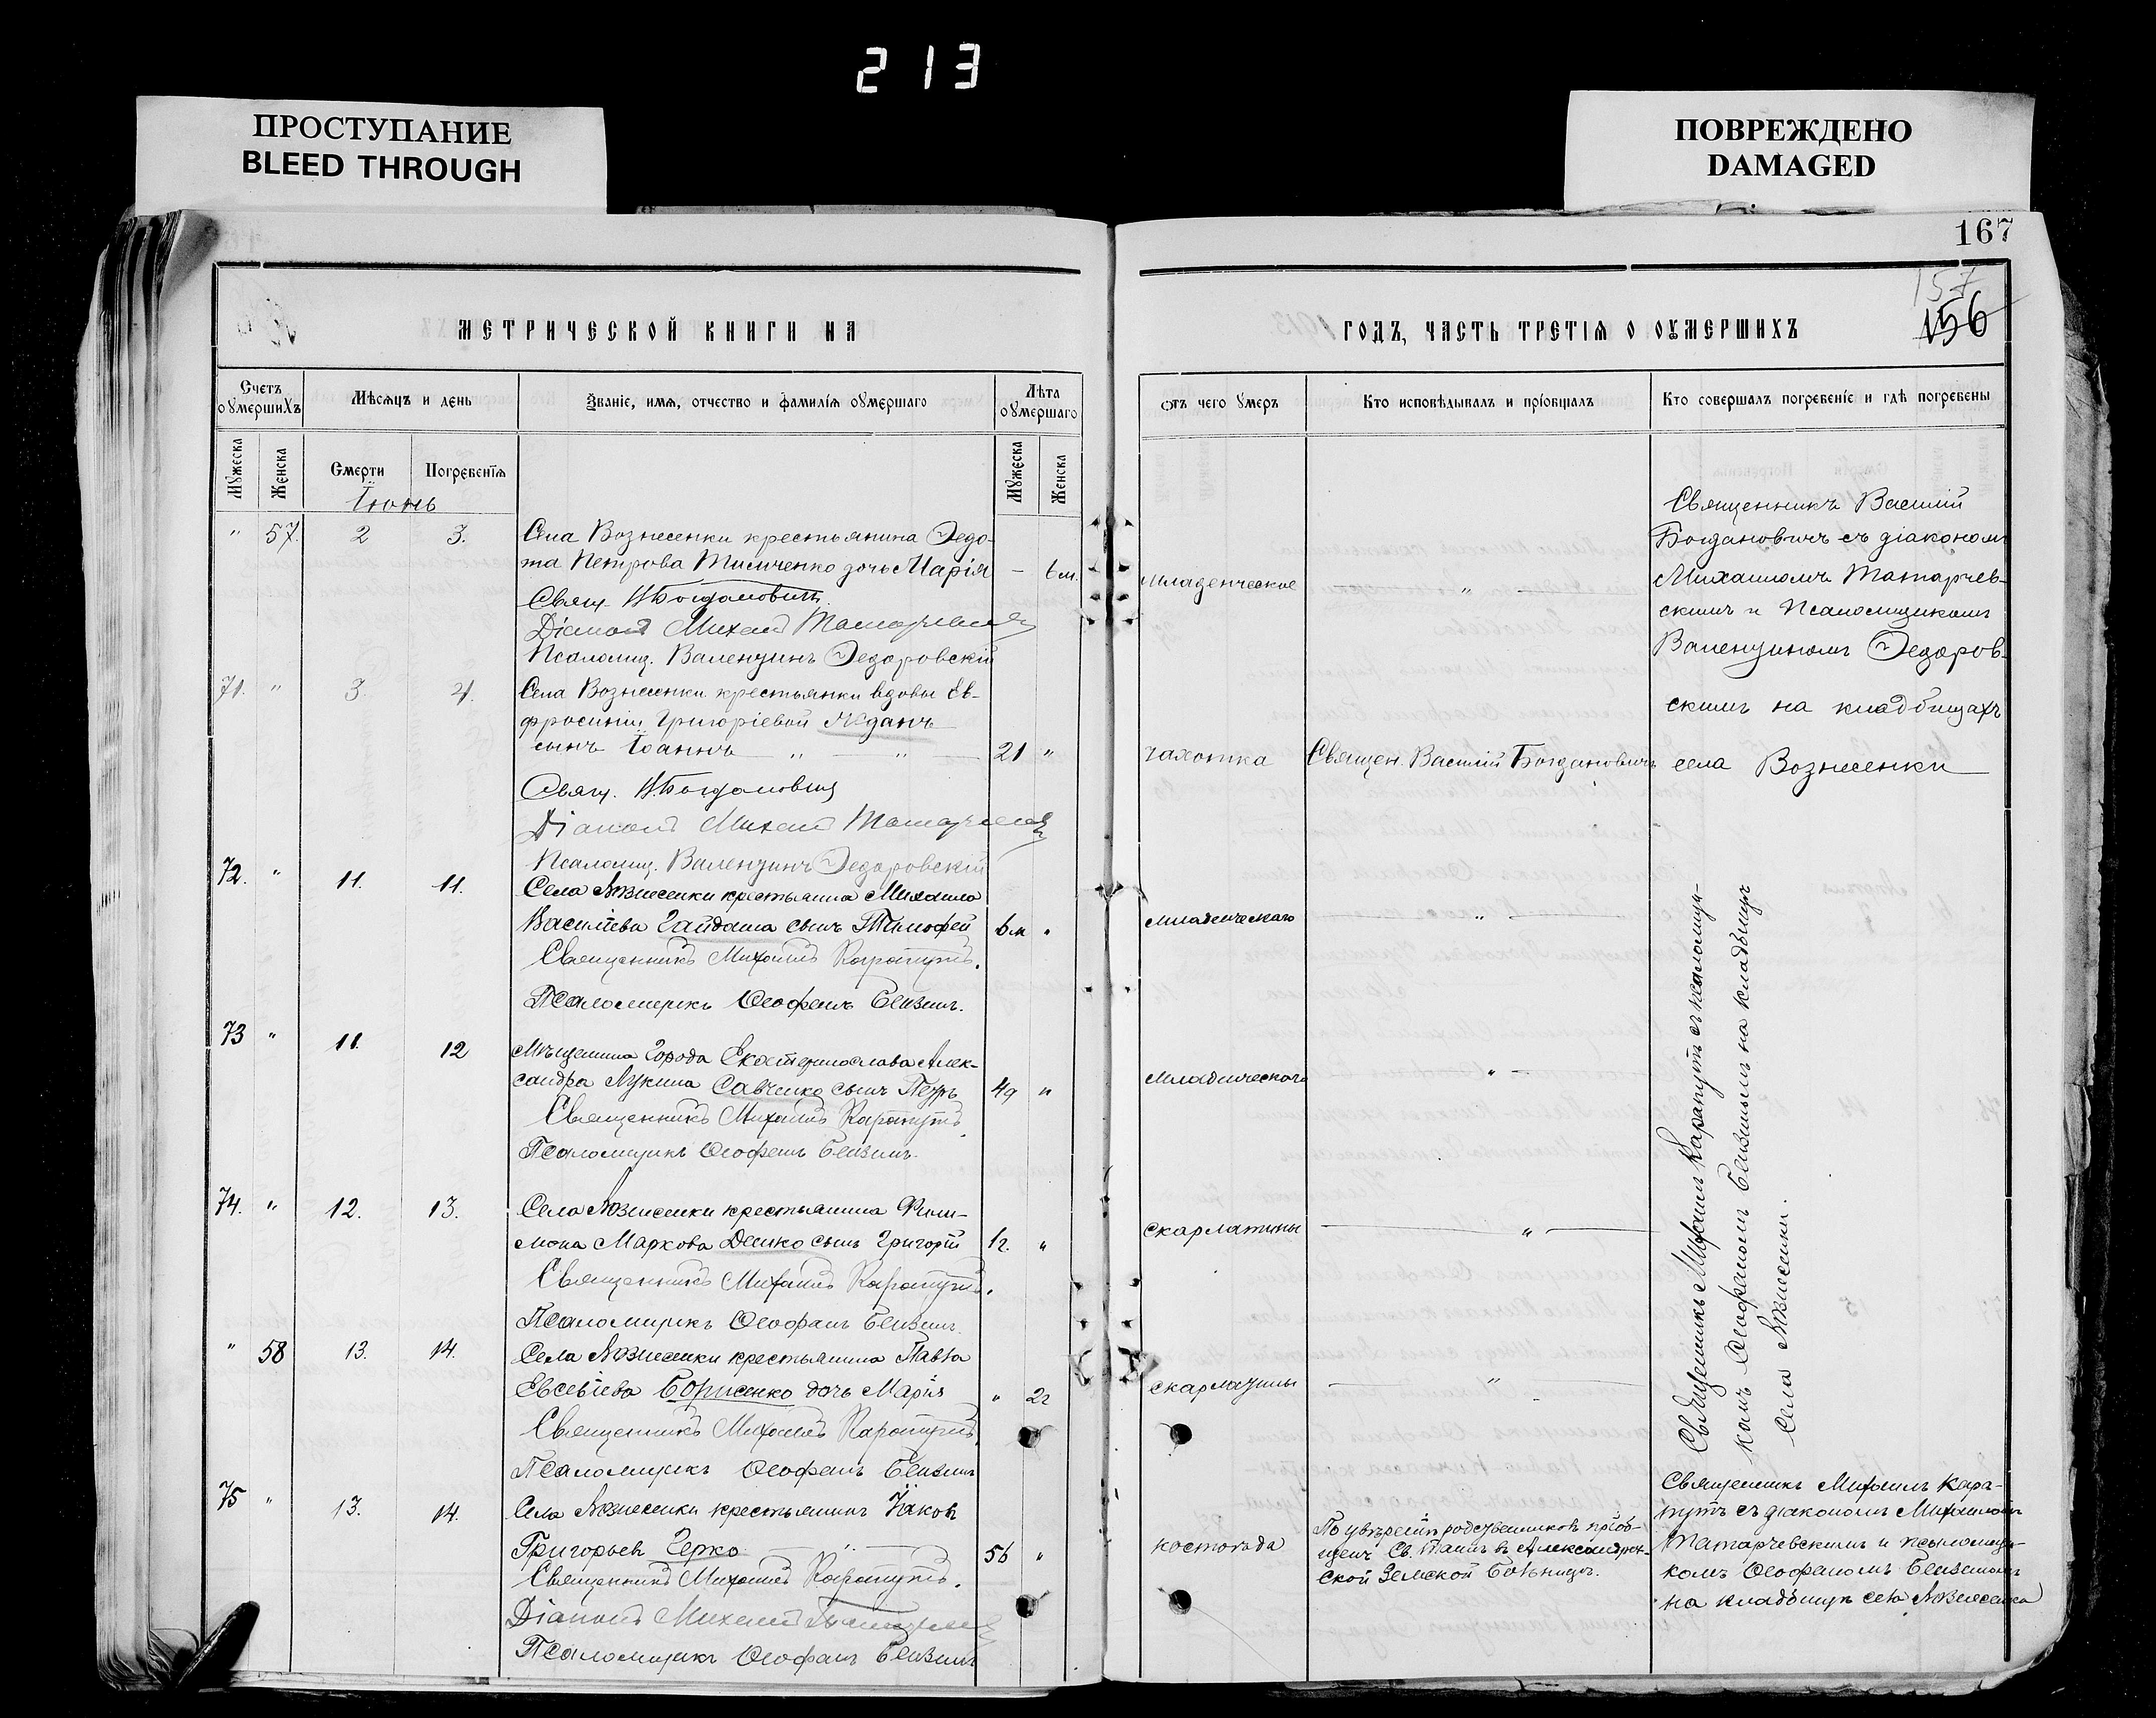 213
ПРОСТУПАНИЕ
BLEED THROUGH
ПОВРЕЖДЕНО
DAMAGED
167
157
156
МЕТРИЧЕСКОЙ КНИГИ НА
Счетъ оумершихъ
Мѣсяцъ и день
Званіе, имя, отчество и фамилія оумершаго
Лѣта оумершаго
Мужеска
Женска
Смерти
Погребенія
Мужеска
Женска
Іюнь
" 57. 2 3. Села Вознесенки крестьянина Федо-
та Петрова дочь Марія – 6 м.
Свящ. В Богдановичъ
Діаконъ Михаилъ Татарчевскій
Псаломщ. Валентинъ Федоровскій
71. " 3. 4. Села Вознесенки крестьянки вдовы Ев-
фросиніи Григоріевой Жданъ
сынъ Іоаннъ " " 21 "
Свящ. В. Богдановичъ
Діаконъ Михаилъ Татарчевскій
Псаломщ. Валентинъ Федоровскій
72. " 11. 11. Села Вознесенки крестьянина Михаила
Василіева Гайдаша сынъ Тимофей 6 м "
Священникъ Михаилъ Карапутъ.
Псаломщикъ Ѳеофанъ
73 " 11. 12 Мѣщанина города Екатеринослава Алек-
сандра Лукина Савченко сынъ Петръ 4 д "
Священникъ Михаилъ Карапутъ.
Псаломщикъ Ѳеофанъ
74. " 12. 13. Села Вознесенки крестьянина Фили-
мона Маркова сынъ Григорій 1 г. "
Священникъ Михаилъ Карапутъ.
Псаломщикъ Ѳеофанъ
" 58 13. 14. Села Вознесенки крестьянина Павла
Евсевіева Борисенко дочь Марія " 2 г
Священникъ Михаилъ Карапутъ.
Псаломщикъ Ѳеофанъ
75 " 13. 14. Села Вознесенки крестьянинъ Іаковъ
Григорьевъ Герко " 56 "
Священникъ Михаилъ Карапутъ.
Діаконъ Михаилъ Татарчевскій
Псаломщикъ Ѳеофанъ
ГОДЪ, ЧАСТЬ ТРЕТІЯ О ОУМЕРШИХЪ
Отъ чего умеръ
Кто исповѣдывалъ и пріобщалъ
Кто совершалъ погребеніе и гдѣ погребены
младенческое "
чахотка Священ. Василій Богдановичъ
младенческаго "
младенческаго "
скарлатины "
скарлатины "
По увѣренію родственниковъ пріоб-
щенъ Св. Таинъ въ Александров-
ской Земской Больницѣ.
Священникъ Василій
Богдановичъ съ діакономъ
Михаиломъ Татарчев-
скимъ и Псаломщикомъ
Валентиномъ Федоров-
скимъ на кладбищахъ
села Вознесенки
Священникъ Михаилъ Карапутъ съ псаломщи-
комъ Ѳеофаномъ на кладбищѣ
села Вознесенки.
Священникъ Михаилъ Кара-
путъ съ діакономъ Михаиломъ
Татарчевскимъ и псаломщи-
комъ Ѳеофаномъ
на кладбищѣ села Вознесенки